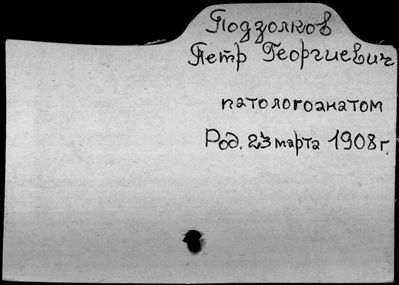 Подзолков
Петр Георгиевич
патологоанатом
Род. 23 марта 1908 г.